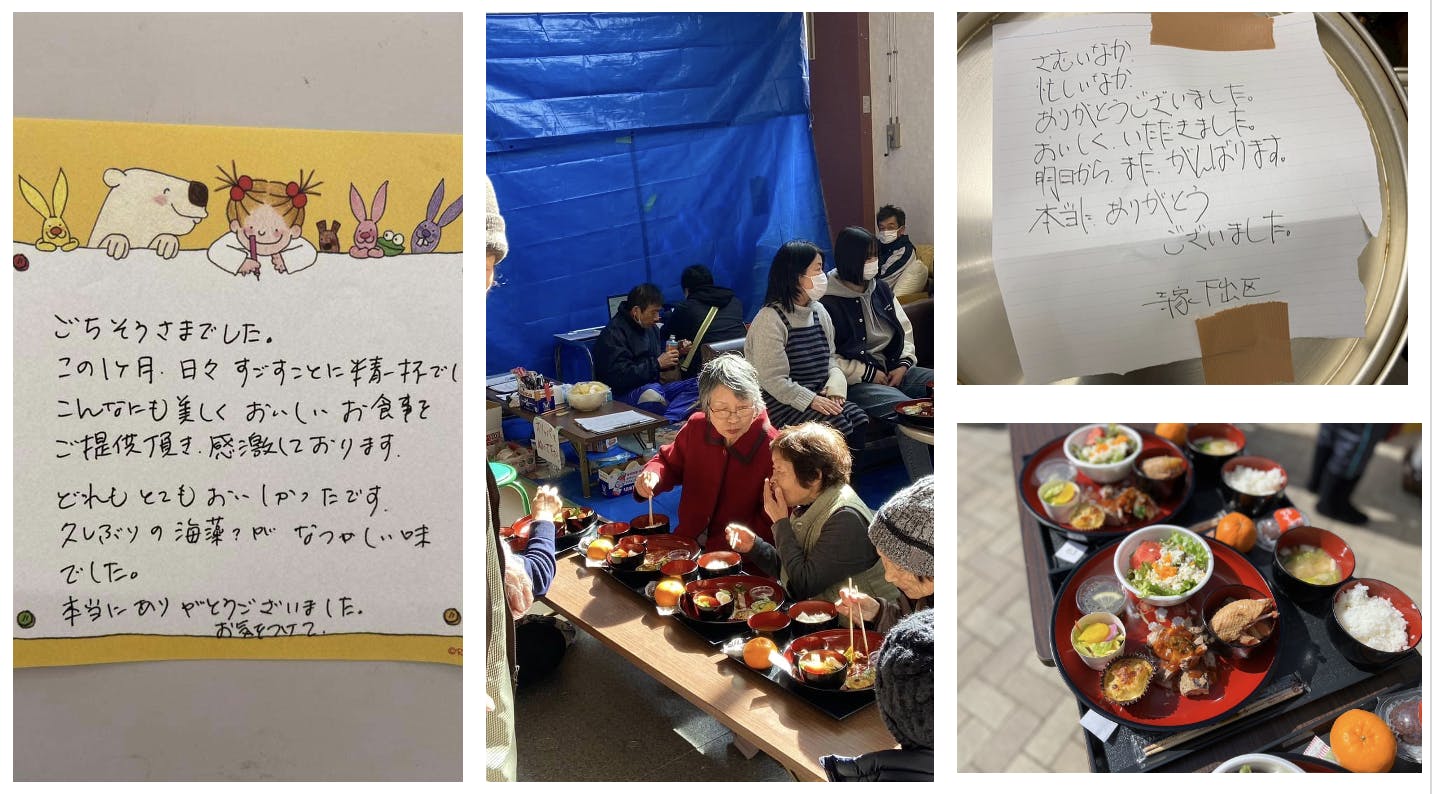 ごちそうさまでした。
この1ヶ月、日々すごすことに精一杯でし
こんなにも美しくおいしいお食事を
ご提供頂き、感激しております。
どれもとてもおいしかったです。
久しぶりの海藻?がなつかしい味
でした。
本当にありがとうございました。
お気をつけて。
さむいなか、
忙しいなか、
ありがとうございました。
おいしく、いただきました。
明日から、また、がんばります。
本当に ありがとう
ございました。
下出区